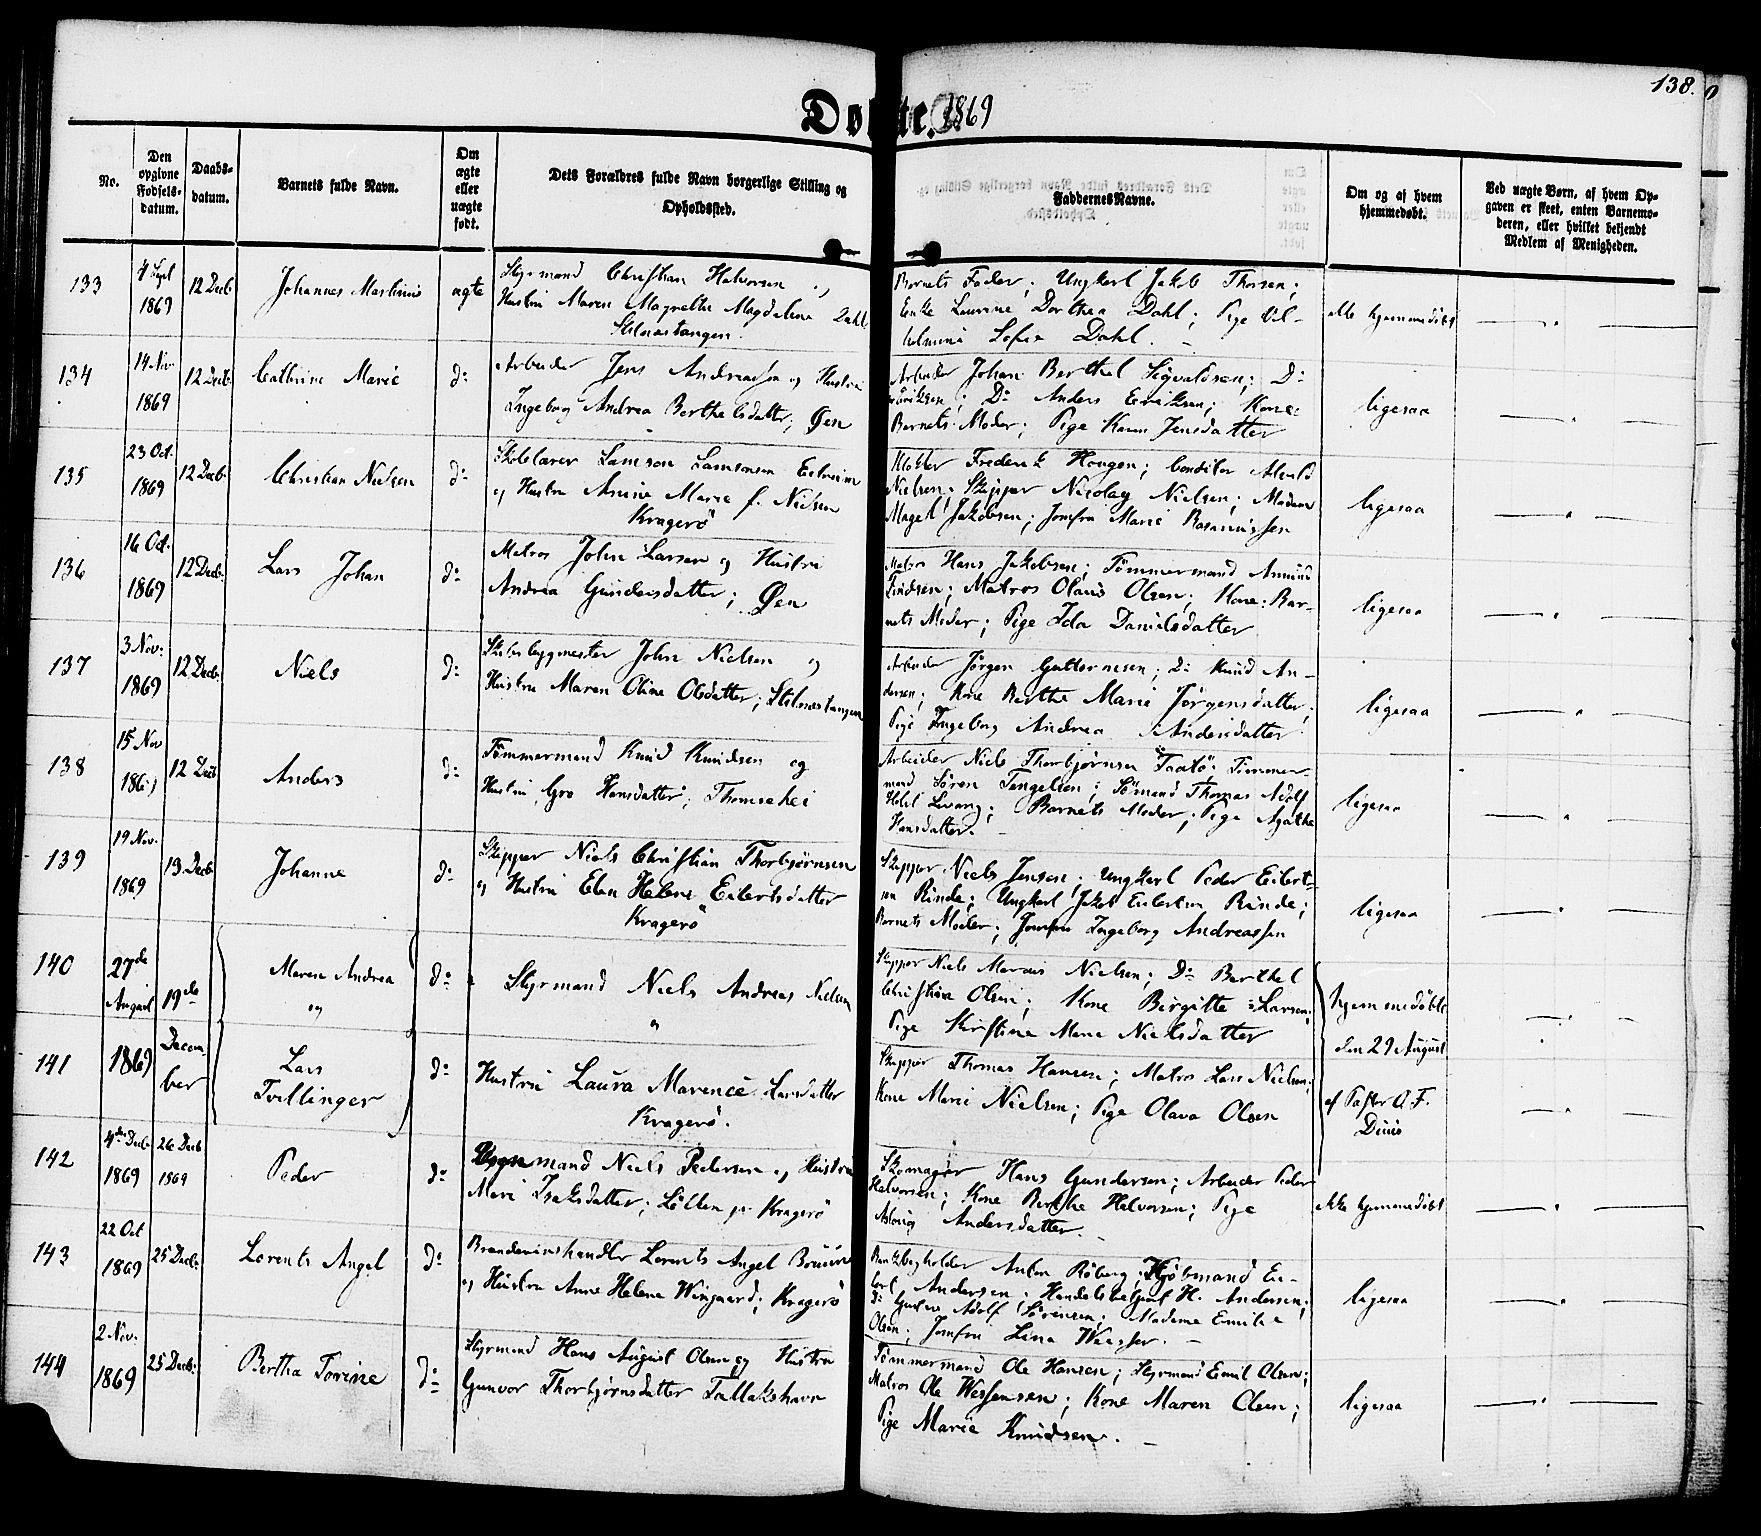 138.
Døbte. 1869
No.
Den opgivne Fødsels-datum.
Daabs-datum.
Barnets fulde Navn.
Om ægte eller uægte født.
Dets Forældres fulde Navn borgerlige Stilling og Opholdssted.
Faddernes Navne.
Om og af hvem hjemmedøbt.
Ved uægte Børn, af hvem Opgaven er skeet, enten Barnemoderen, eller hvilket bekjendt Medlem af Menigheden.
133
4 Sept 1869
12 Decb
Johannes Martinius
ægte
Styrmand Christian Halvorsen og
Hustru Maren Magrethe Magdalena Dahl
Stilnæstangen.
Barnets Fader; Ungkarl Jakob Thorsen;
Enke Laurine Dorthea Dahl; Pige Vil-
helmine Sofie Dahl. -
ikke hjemmedøbt
134
14 Nov. 1869
12 Decb.
Cathrine Marie
do
Arbeider Jens Andreassen og Hustru
Ingeborg Andrea Berthelsdatter; Øen
Arbeider Johan Berthel Sigvaldsen; Do
Eriksen; Do Anders Eriksen; Kone:
Barnets Moder; Pige Karen Jensdatter
ligesaa
135
23 Oct. 1869
12 Decb.
Christian Nielsen
do
Skolelærer Samson Samsonsen
og Hustru Anine Marie f. Nielsen
Kragerø
Klokker Frederik Haugen; Conditor
Nielsen; Skipper Nicolay Nielsen; Madam
Jakobsen; Jomfru Marie Rasmussen
ligesaa
136
16 Oct. 1869
12 Decb.
Lars Johan
do
Matros John Larsen og Hustru
Andrea Gundersdatter; Øen
Matros Hans Jakobsen; Tømmermand Amund
Knudsen; Matros Olaus Olsen; Kone: Bar-
nets Moder; Pige Ida Danielsdatter
ligesaa
137
3 Nov: 1869
12 Decb.
Niels
do
Skibsbygmester John Nielsen og
Hustru Maren Oline Olsdatter; Stilnæstangen
Arbeider Jørgen Guttormsen; Do Knud An-
dersen; Kone Berthe Marie Jørgensdatter;
Pige Ingeborg Andrea Andersdatter
ligesaa
138
15 Nov 1869
12 Decb
Anders
do
Tømmermand Knud Knudsen og
Hustru Gro Hansdatter; Thomsehei
Arbeider Niels Thorbjørnsen Taatø; Tømmer-
mand Søren Tangelien; Sømand Thomas Adolf
Barnets Moder; Pige Agathe
Hansdatter. -
ligesaa
139
19 Nov. 1869
13 Decb.
Johanne
do
Skipper Niels Christian Thorbjørnsen
og Hustru Elen Helene Eilertsdatter
Kragerø
Skipper Niels Jensen; Ungkarl Peder Eilert-
sen Rinde; Ungkarl Jakob Eilertsen Rinde;
Barnets Moder; Jomfru Ingeborg Andreassen
ligesaa
140
27de August 1869
19de December
Maren Andrea
og
do
Styrmand Niels Andreas Nielsen
og
Skipper Niels Marius Nielsen; Do Berthel
Christian Olsen; Kone Birgitte Larsen;
Pige Kirstine Marie Nielsdatter
hjemmedøbte
den 29 August
141
Lars
Tvillinger
do
Hustru Laura Marence Larsdatter
Kragerø.
Skipper Thomas Hansen; Matros Lars Nielsen;
Kone Marie Nielsen; Pige Olava Olsen
af Pastor
142
4de Decb. 1869
26 Decb 1869
Peder
do
mand Niels Pedersen og Hustru
Mari Isaksdatter; Kragerø
Skomager Hans Gundersen; Arbeider Peder
Halvorsen; Kone Berthe Halvorsen; Pige
Aslaug Andersdatter. -
ikke hjemmedøbt
143
22 Oct 1869
25 Decb.
Lorents Angel
do
Brændevinshandler Lorents Angel
og Hustru Anne Helene Wingaard; Kragerø
Bankbogholder Anton Røberg; Kjøbmand Ei-
lert Andersen; Handelsbetjent H. Andersen;
do Gustav Adolf Sørensen; Madame Emilie
Olsen; Jomfru Lina -
ligesaa
144
2 Nov. 1869
25 Decb.
Bertha Torine
do
Styrmand Hans August Olsen og Hustru
Gunvor Thorbjørnsdatter Tallakshavn
Tømmermand Ole Hansen; Styrmand Emil Olsen;
Matros Ole; Kone Maren Olsen;
Pige Marie Knudsen. -
ligesaa